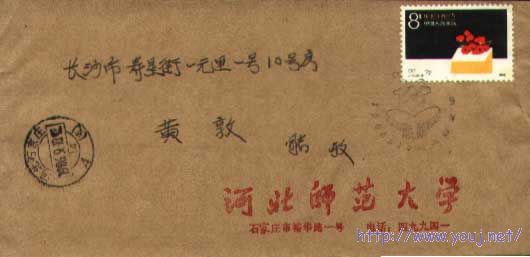 8
中国人民邮政
长沙市寿星街一元里一号10号房
黄敦 收
1986.9.
河北师范大学
石家庄市裕华路一号 电话:四九九四一
http://www.youj.net/